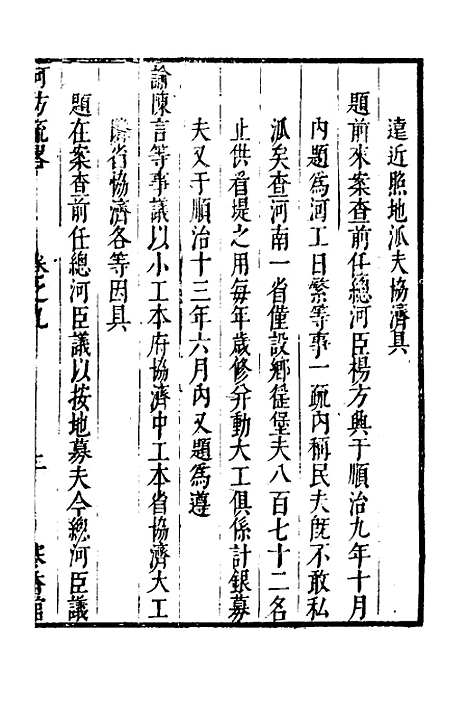 遠近照地派夫協濟具
題前來案查前任總河臣楊方興于順治九年十月
內題為河工日繁等事一疏內稱民夫旣不敢私
派矣查河南一省僅設鄉徭堡夫八百七十二名
止供看堤之用每年歲修分動大工俱係計銀募
夫又于順治十三年六月內又題為遵
諭陳言等事議以小工本府協濟中工本省協濟大工
隣省協濟各等因具
題在案查前任總河臣議以按地募夫今總河臣議
河防疏畧 卷之九